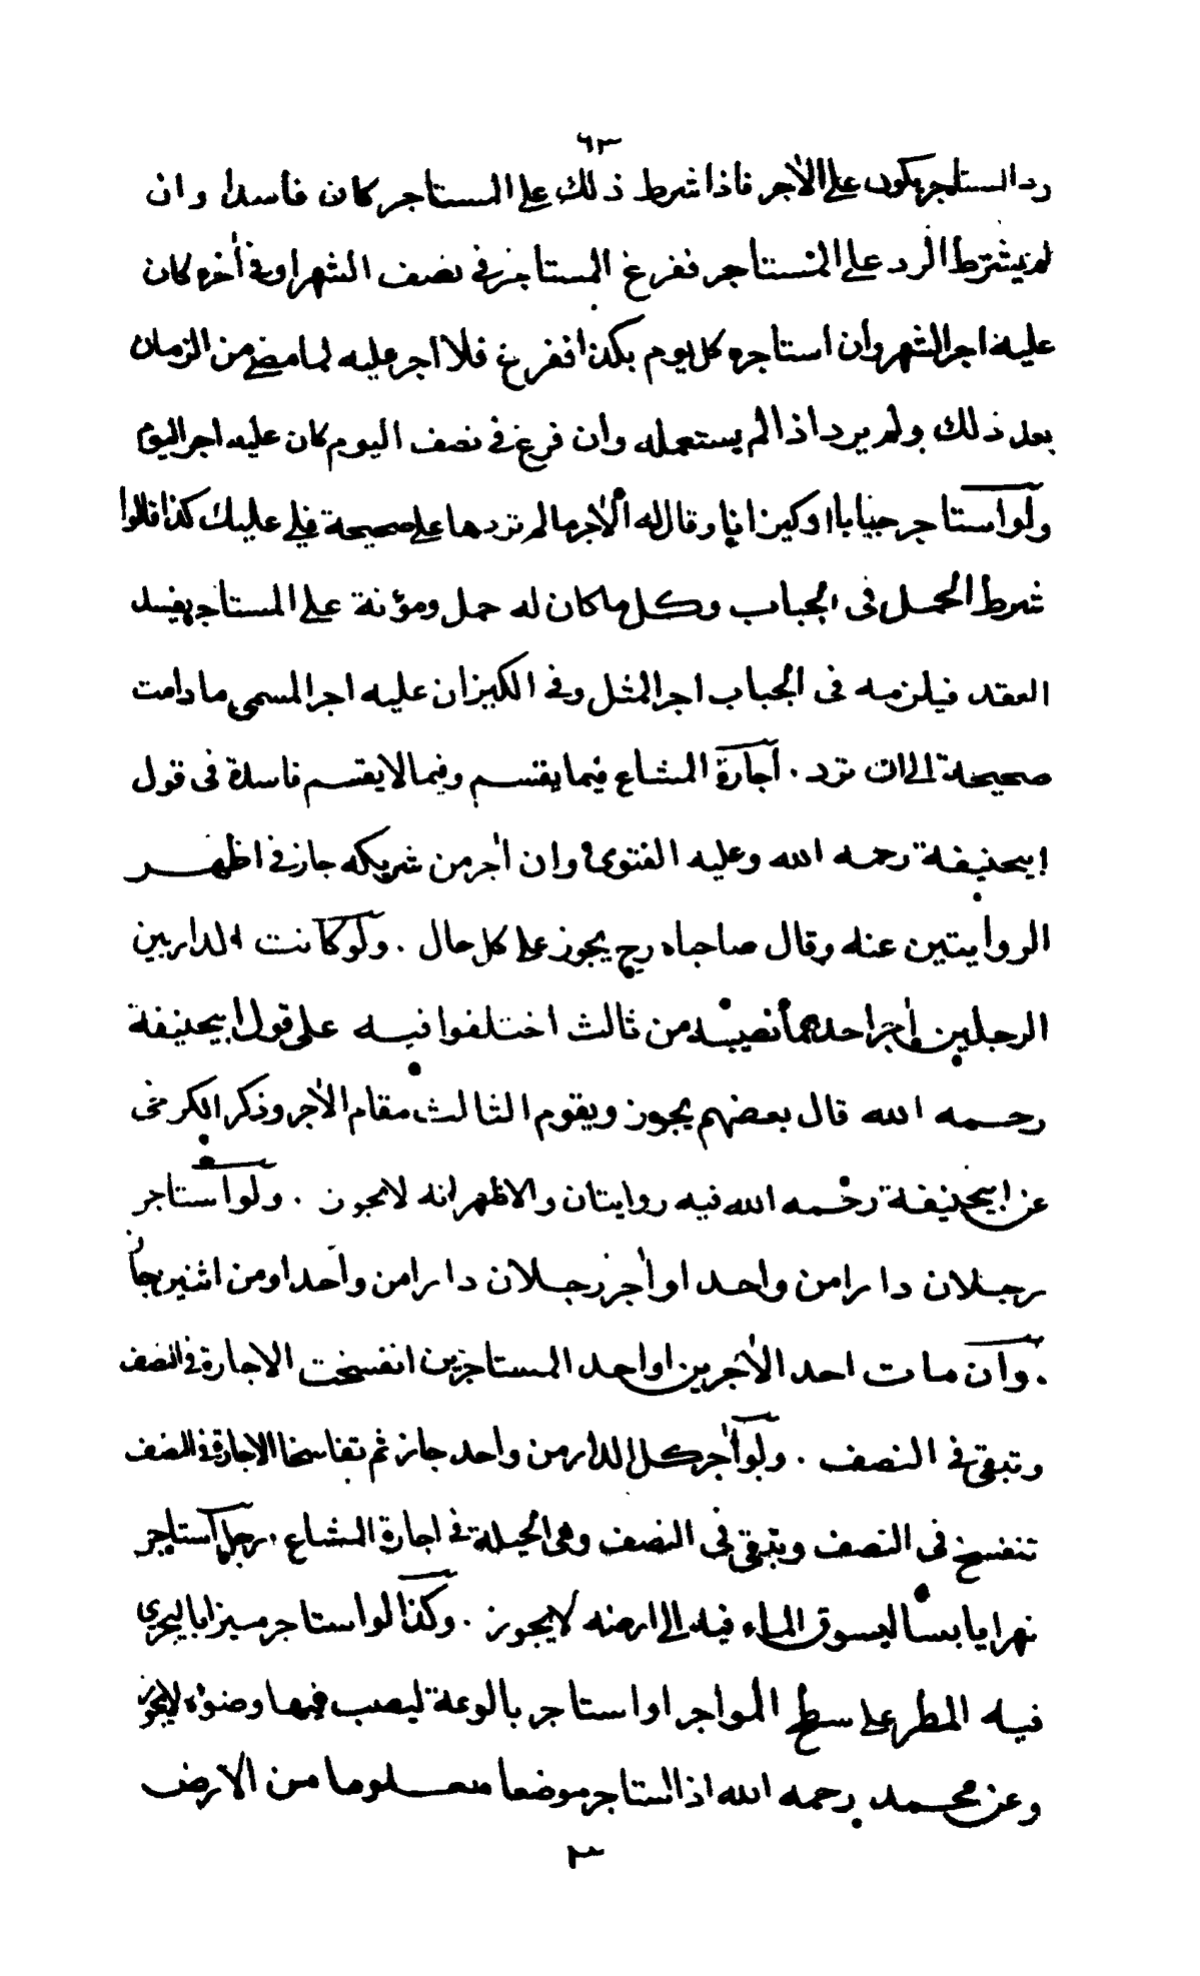 ٦٣
رد المستاجر يكون على الاجر فاذا شرط ذلك على المستاجر كان فاسدا وان
لم يشترط الرد على المستاجر ففرغ المستاجر في نصف الشهر او في اخره كان
عليه اجر الشهر وان استاجره كل يوم بكذا ففرغ فلا اجر عليه لما مضى من الزمان
بعد ذلك ولم يرد اذا لم يستعمله وان فرغ في نصف اليوم كان عليه اجر اليوم
ولو استاجر حبابا او كيزانا وقال له الاجر ما لم تردها على صحيحة فلى عليك كذا قالوا
شرط الحمل فى الجباب وكل ما كان له حمل ومؤنة على المستاجر يفسد
العقد فيلزمه فى الجباب اجر المثل وفي الكيزان عليه اجر المسمى ما دامت
صحيحة الى ان ترد . اجارة المشاع فيما يقسم وفيما لا يقسم فاسدة فى قول
ابيحنيفة رحمه الله وعليه الفتوى وان اٰجر من شريكه جاز في اظهر
الروايتين عنه وقال صاحباه رح يجوز على كل حال . ولو كانت الدار بين
الرجلين واٰجر احدهما نصيبه من ثالث اختلفوا فيه على قول ابيحنيفة
رحمه الله قال بعضهم يجوز ويقوم الثالث مقام الاٰجر وذكر الكرخى
عن ابيحنيفة رحمه الله فيه روايتان والاظهر انه لا يجوز . ولو استاجر
رجلان دارا من واحد او اٰجر رجلان دارا من واحد او من اثنين جاز
. وان مات احد الاٰجرين او احد المستاجرين انفسخت الاجارة في النصف
وتبقى في النصف . ولو اٰجر كل الدار من واحد جاز ثم تفاسخا الاجارة في النصف
تنفسخ فى النصف ويبقى فى النصف وهى الحيلة في اجارة المشاع . رجل استاجر
نهرا يابسا ليسوق الماء فيه الى ارضه لا يجوز . وكذا لو استاجر ميزابا ليجرى
فيه المطر على سطح المواجر او استاجر بالوعة ليصب فيها وضوءه لا يجوز
وعن محمد رحمه الله اذا استاجر موضعا معلوما من الارض